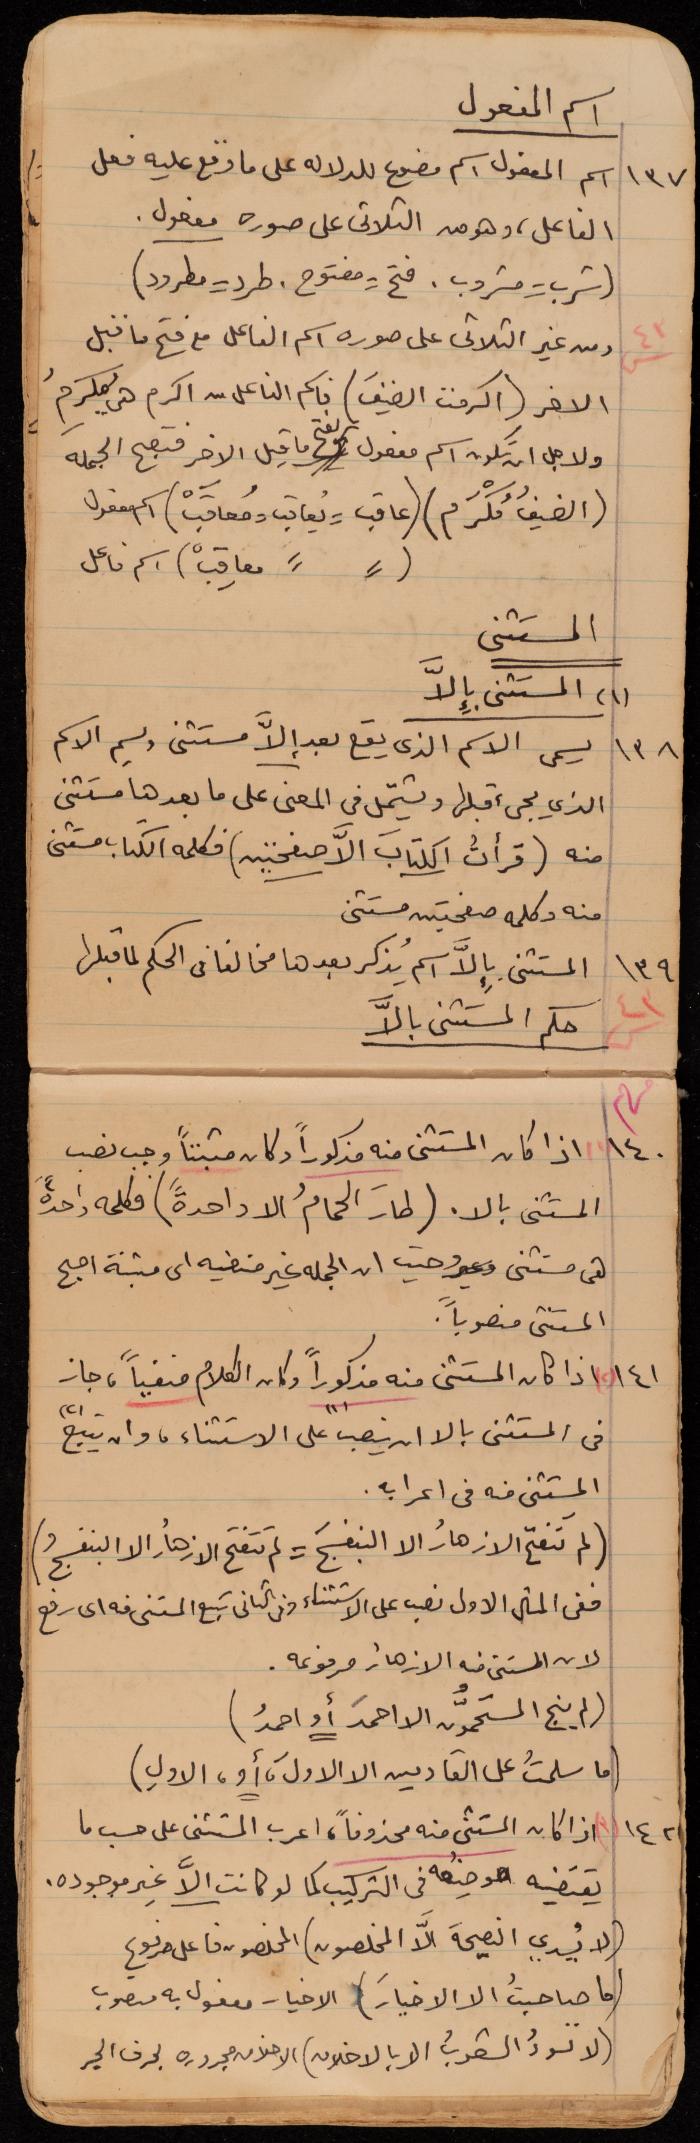 اسم المفعول
١٣٧ اسم المفعول اسم مصوغ للدلاله على ما وقع عليه فعل
الفاعل، وهو من الثلاثى على صوره مفعول.
(شرب = مشروب . فتح = مفتوح . طرد = مطرود)
٤٢ ومن غير الثلاثى على صوره اسم الفاعل مع فتح ما قبل
الاخر (اكرمت الضيفَ) فاسم الفاعل من اكرم هى مُكرِمُ
ولاجل ان تكون اسم مفعول نفتح ما قبل الاخر فتصبح الجمله
(الضيفُ مُكْرَم) (عاقب = يُعاقب = مُعاقَبْ) اسم مفعول
( = = معاقِبْ) اسم فاعل
المستثنى
(١) المستثنى بإلاَّ
١٣٨ يسمى الاسم الذى يقع بعد إلاَّ مستثنى ويسم الاسم
الذي يجى قبلها ويشتمل فى المعنى على ما بعدها مستثنى
منه (قرأتُ الكتابَ الاَّ صفحتين) فكلمه الكتاب مستثنى
منه وكلمه صفحتين مستثنى
١٣٩ المستثنى بإلاَّ اسم يُذكر بعدها مخالفا فى الحكم لما قبلها
٤٣ حكم المستثنى بالاَّ
١٤٠ (١) اذا كان المستثنى منه مذكوراً وكان مثبتاً وجب نصب
المستثنى بالا. (طارَ الحمامُ الا واحدةً) فكلمه واحدةً
هى مستثنى وحيث ان الجمله غير منفيه اى مثبتة اصبح
المستثنى منصوباً.
١٤١ (٢) اذا كان المستثنى منه مذكوراً وكان الكلام منفياً، جاز
فى المستثنى بالا ان ينصب (١) على الاستثناء، وان يتبع (٢)
المستثنى منه فى اعرابه.
(لم تَتفتح الازهارُ الا البنفسجَ = لم تتفتح الازهارُ الا البنفسجُ)
ففى المثل الاول نصب على الاستثناء وفى الثانى تبع المستثنى منه اى رفع
لان المستثنى منه الازهار مرفوعه.
(لم ينج المستحمُّون الا احمدَ أو احمدُ)
(ما سلمتُ على القادمين الا الاولَ، أو، الاولِ)
١٤٢ (٣) اذا كان المستثنى منه محذوفاً، اعرب المستثنى على حسب ما
يقتضيه موضعه فى التركيب كما لو كانت الاَّ غير موجوده.
(لا يُسدي النصيحةَ الَّا المخلصون) المخلصون فاعل مرفوع
(ما صاحبتُ الا الاخيارَ) الاخيار مفعول به منصوب
(لا تسودُ الشعوبُ الا بالاخلاق) الاخلاق مجروره بحرف الجر